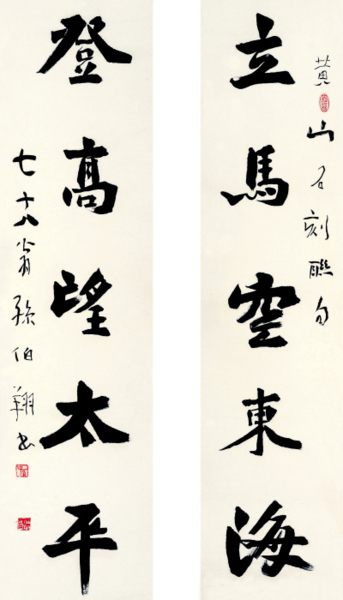 黄山石刻聯句
立馬空東海
登高望太平
七十八翁孫伯翔書